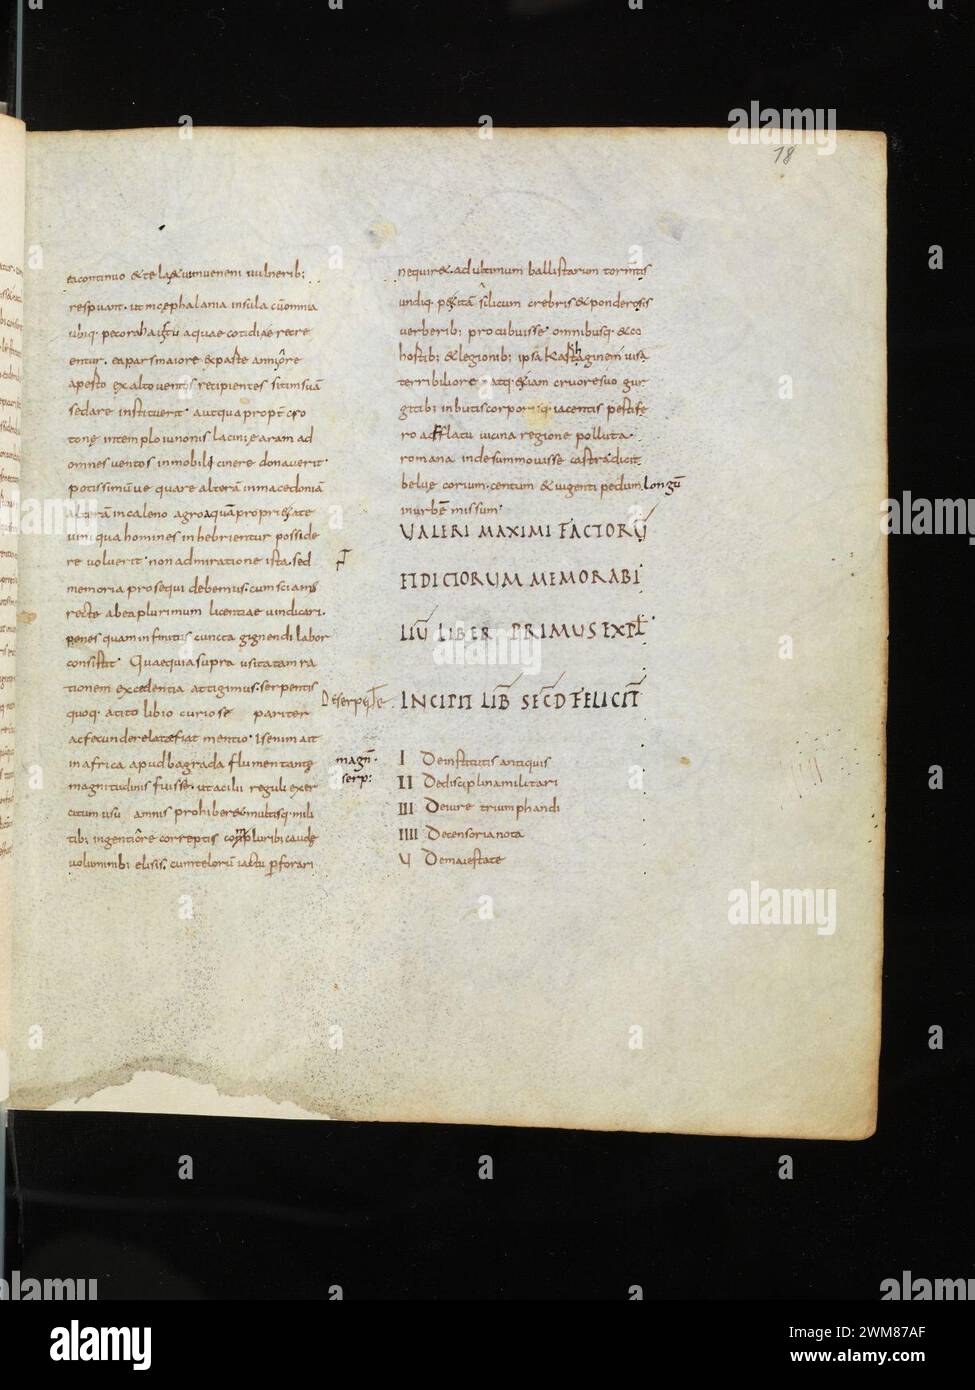 18
ea continuo & tela & uim ueneni uulnerib;
respuant. ut in cephalania insula cū omnia
ubiq. pecora haustu aquae cotidiae recre
entur. ea pars maiore ex parte anni ore
aperto ex alto uentos recipientes sitim suā
sedare instituerit. aut qua propt cro
tone in templo iunonis laciniȩ aram ad
omnes uentos inmobili cinere donauerit.
potissimū ue quare alterā in macedoniā
alterā in caleno agro aquam propri&ate
uini qua homines inhebrientur posside
re uoluerit. non admiratione ista. sed
memoria prosequi debemus. cum sciam
recte ab ea plurimum licentiae uindicari.
penes quam infinitus cuncta gignendi labor
consistit. Quae quia supra usitatam ra
tionem excedentia attigimus. serpentis
quoq. a tito libio curiose pariter
ac fecunde relatȩ fiat mentio. Is enim ait
in africa apud bagrada flumen tantȩ
magnitudinis fuisse. ut atilii reguli exer
citum usu amnis prohiber& multisq. mili
tib; ingenti ore correptis compluribi caudȩ
uoluminib; elisis. cum telorū iactu pforari
De serpente
magn.
serp:
nequir&. ad ultimum ballistarum tormtis
undiq. p&itā silicum crebris & ponderosis
uerberib; procubuisse. omnibusq. & co
hostib; & legionib; ipsa Karthagine uisā
terribiliore. atq. &iam cruore suo gur
gitib; inbutis corporisq. iacentis pestife
ro afflatu uicina regione polluta.
romana inde summouisse castra. dicit
beluȩ corium. centum & uigenti pedum longū
in urbē missum.
UALERI MAXIMI FACTORŪ
ET DICTORUM MEMORABI
LIŪ LIBER PRIMUS EXPL̄.
INCIPIT LIB SECD FELICIT
I De institutis antiquis
II De disciplina militari
III De iure triumphandi
IIII De censoria nota
V De maiestate
alamy
Image ID: 2WM87AF
www.alamy.com